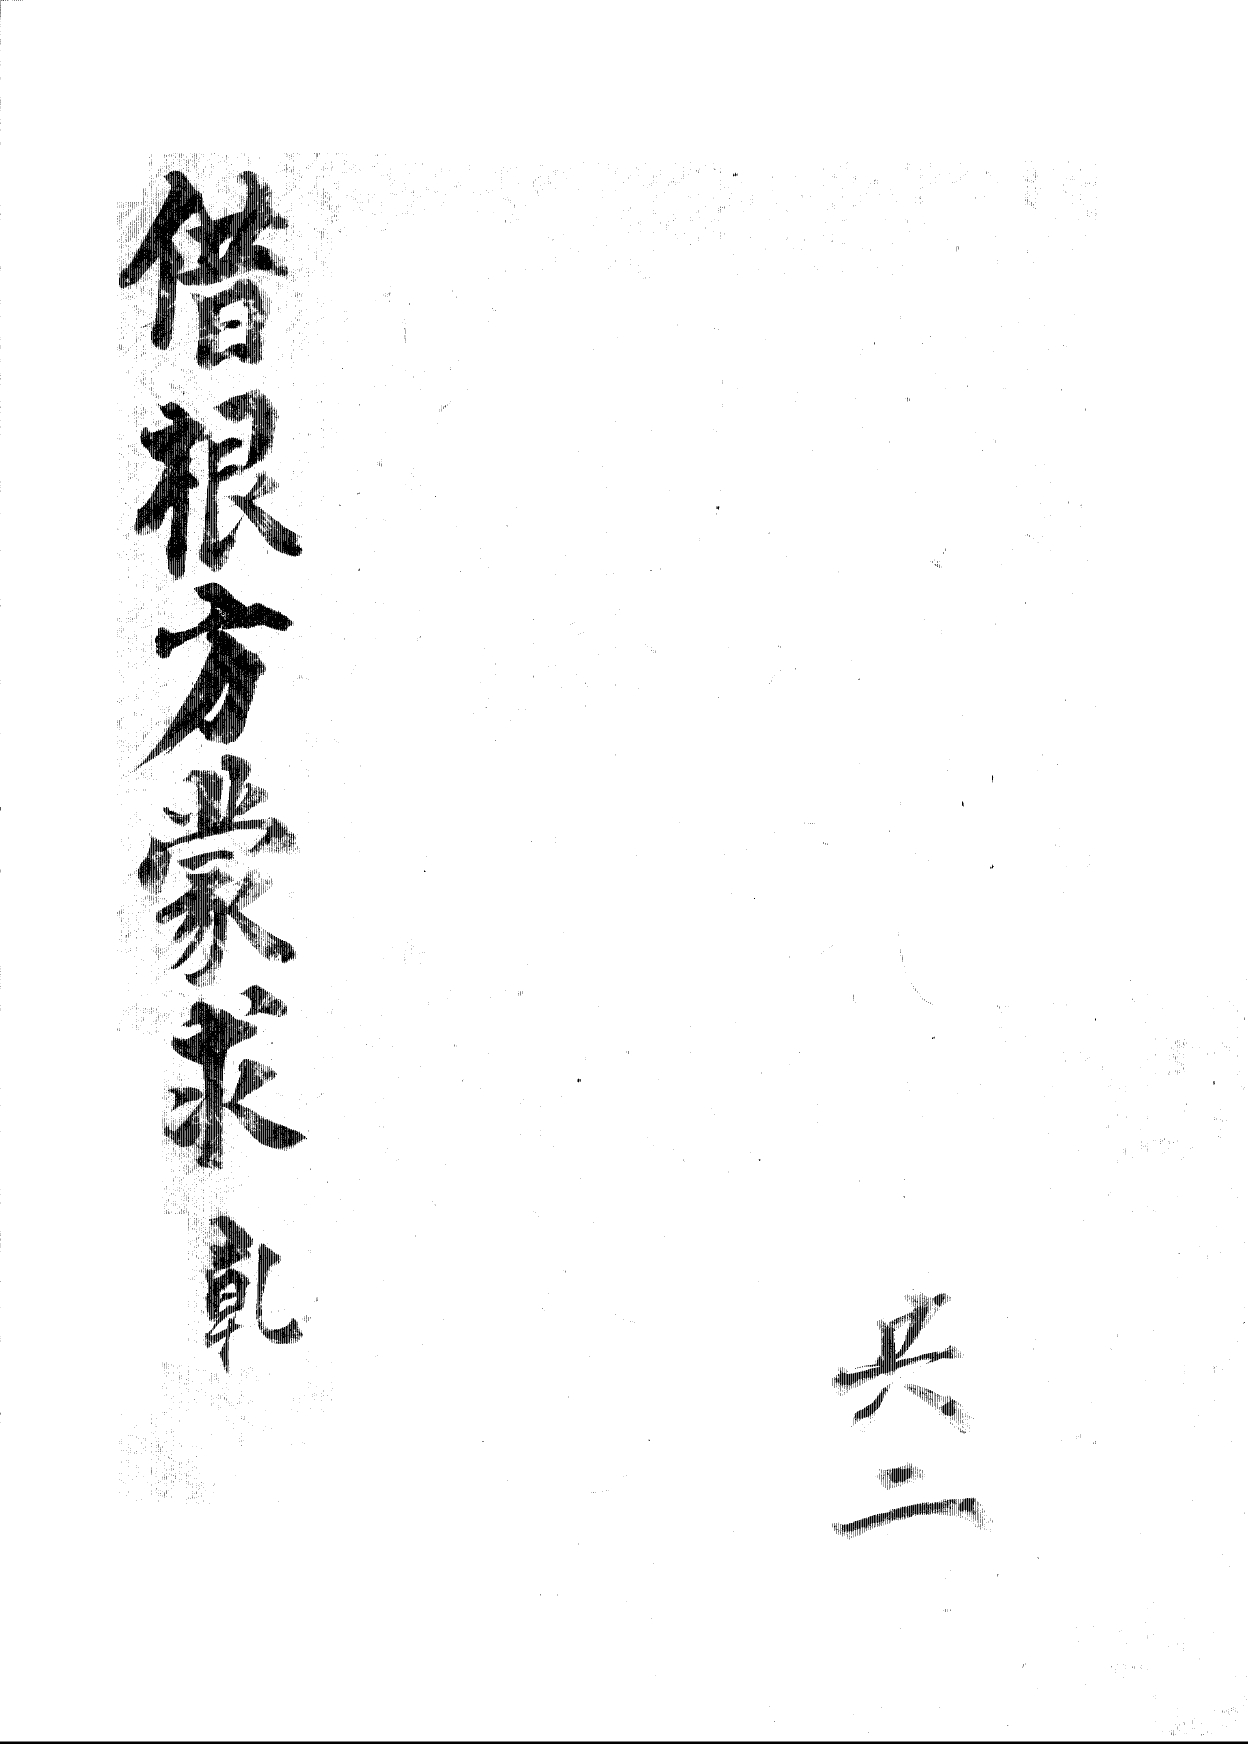 借根方蒙求 乾
共二